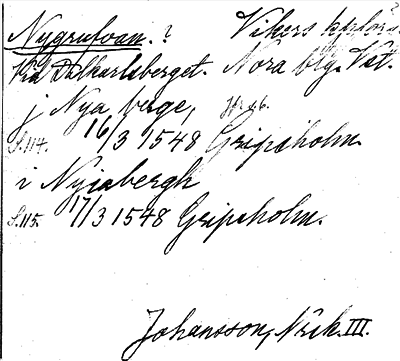 Nygrufvan.? Vikers kplförs.?
Vid Dalkarlsberget. Nora btg. Vst.
j Nya berge, Hrsb.
S.114. 16/3 1548 Gripsholm
i Nyiabergh
S.115. 17/3 1548 Gripsholm.
Johansson, Nrik. III.